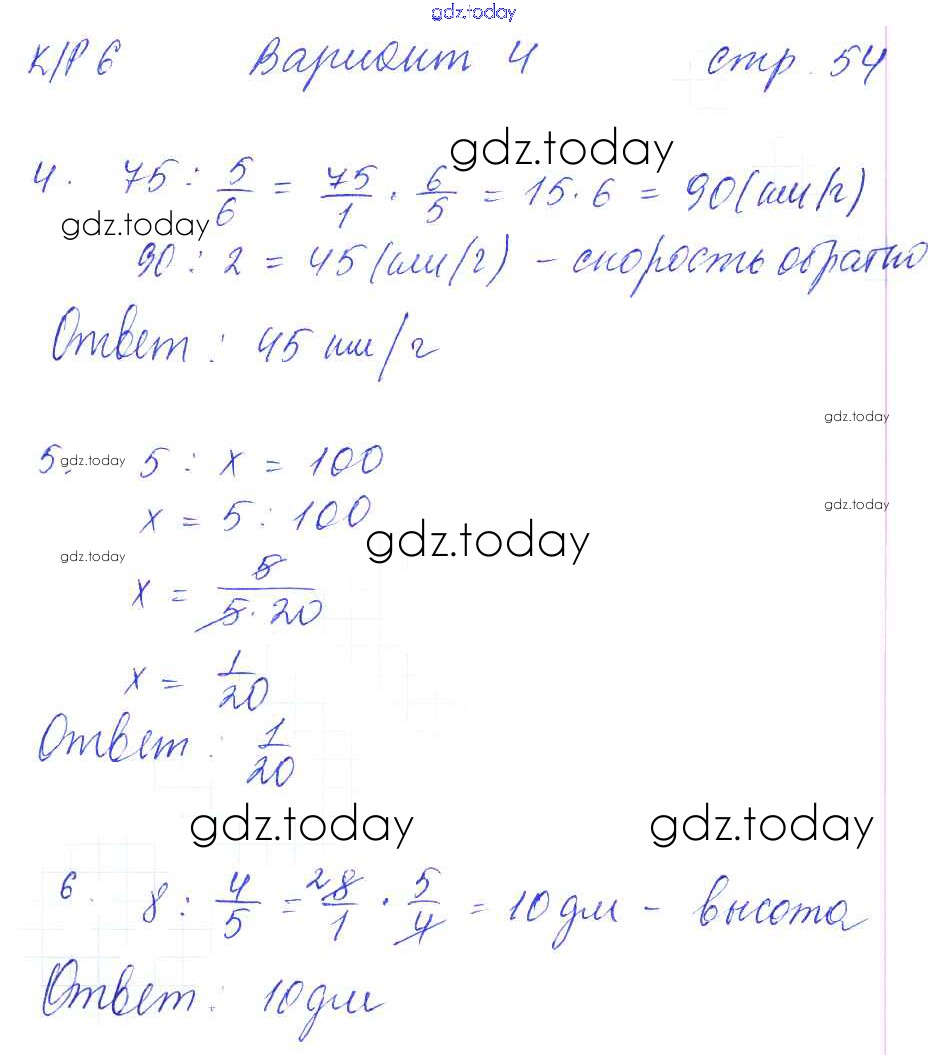 gdz.today
К/Р 6 Вариант 4 стр. 54
gdz.today
4. 75 : 5/6 = 75/1 · 6/5 = 15 · 6 = 90 (км/ч)
gdz.today
90 : 2 = 45 (км/ч) - скорость обратно
Ответ : 45 км/ч
gdz.today
5. gdz.today 5 : x = 100
gdz.today
x = 5 : 100
gdz.today
gdz.today
x = 5/5·20
x = 1/20
Ответ : 1/20
gdz.today gdz.today
6. 8 : 4/5 = 2 8/1 · 5/4 = 10 дм - высота
Ответ : 10 дм